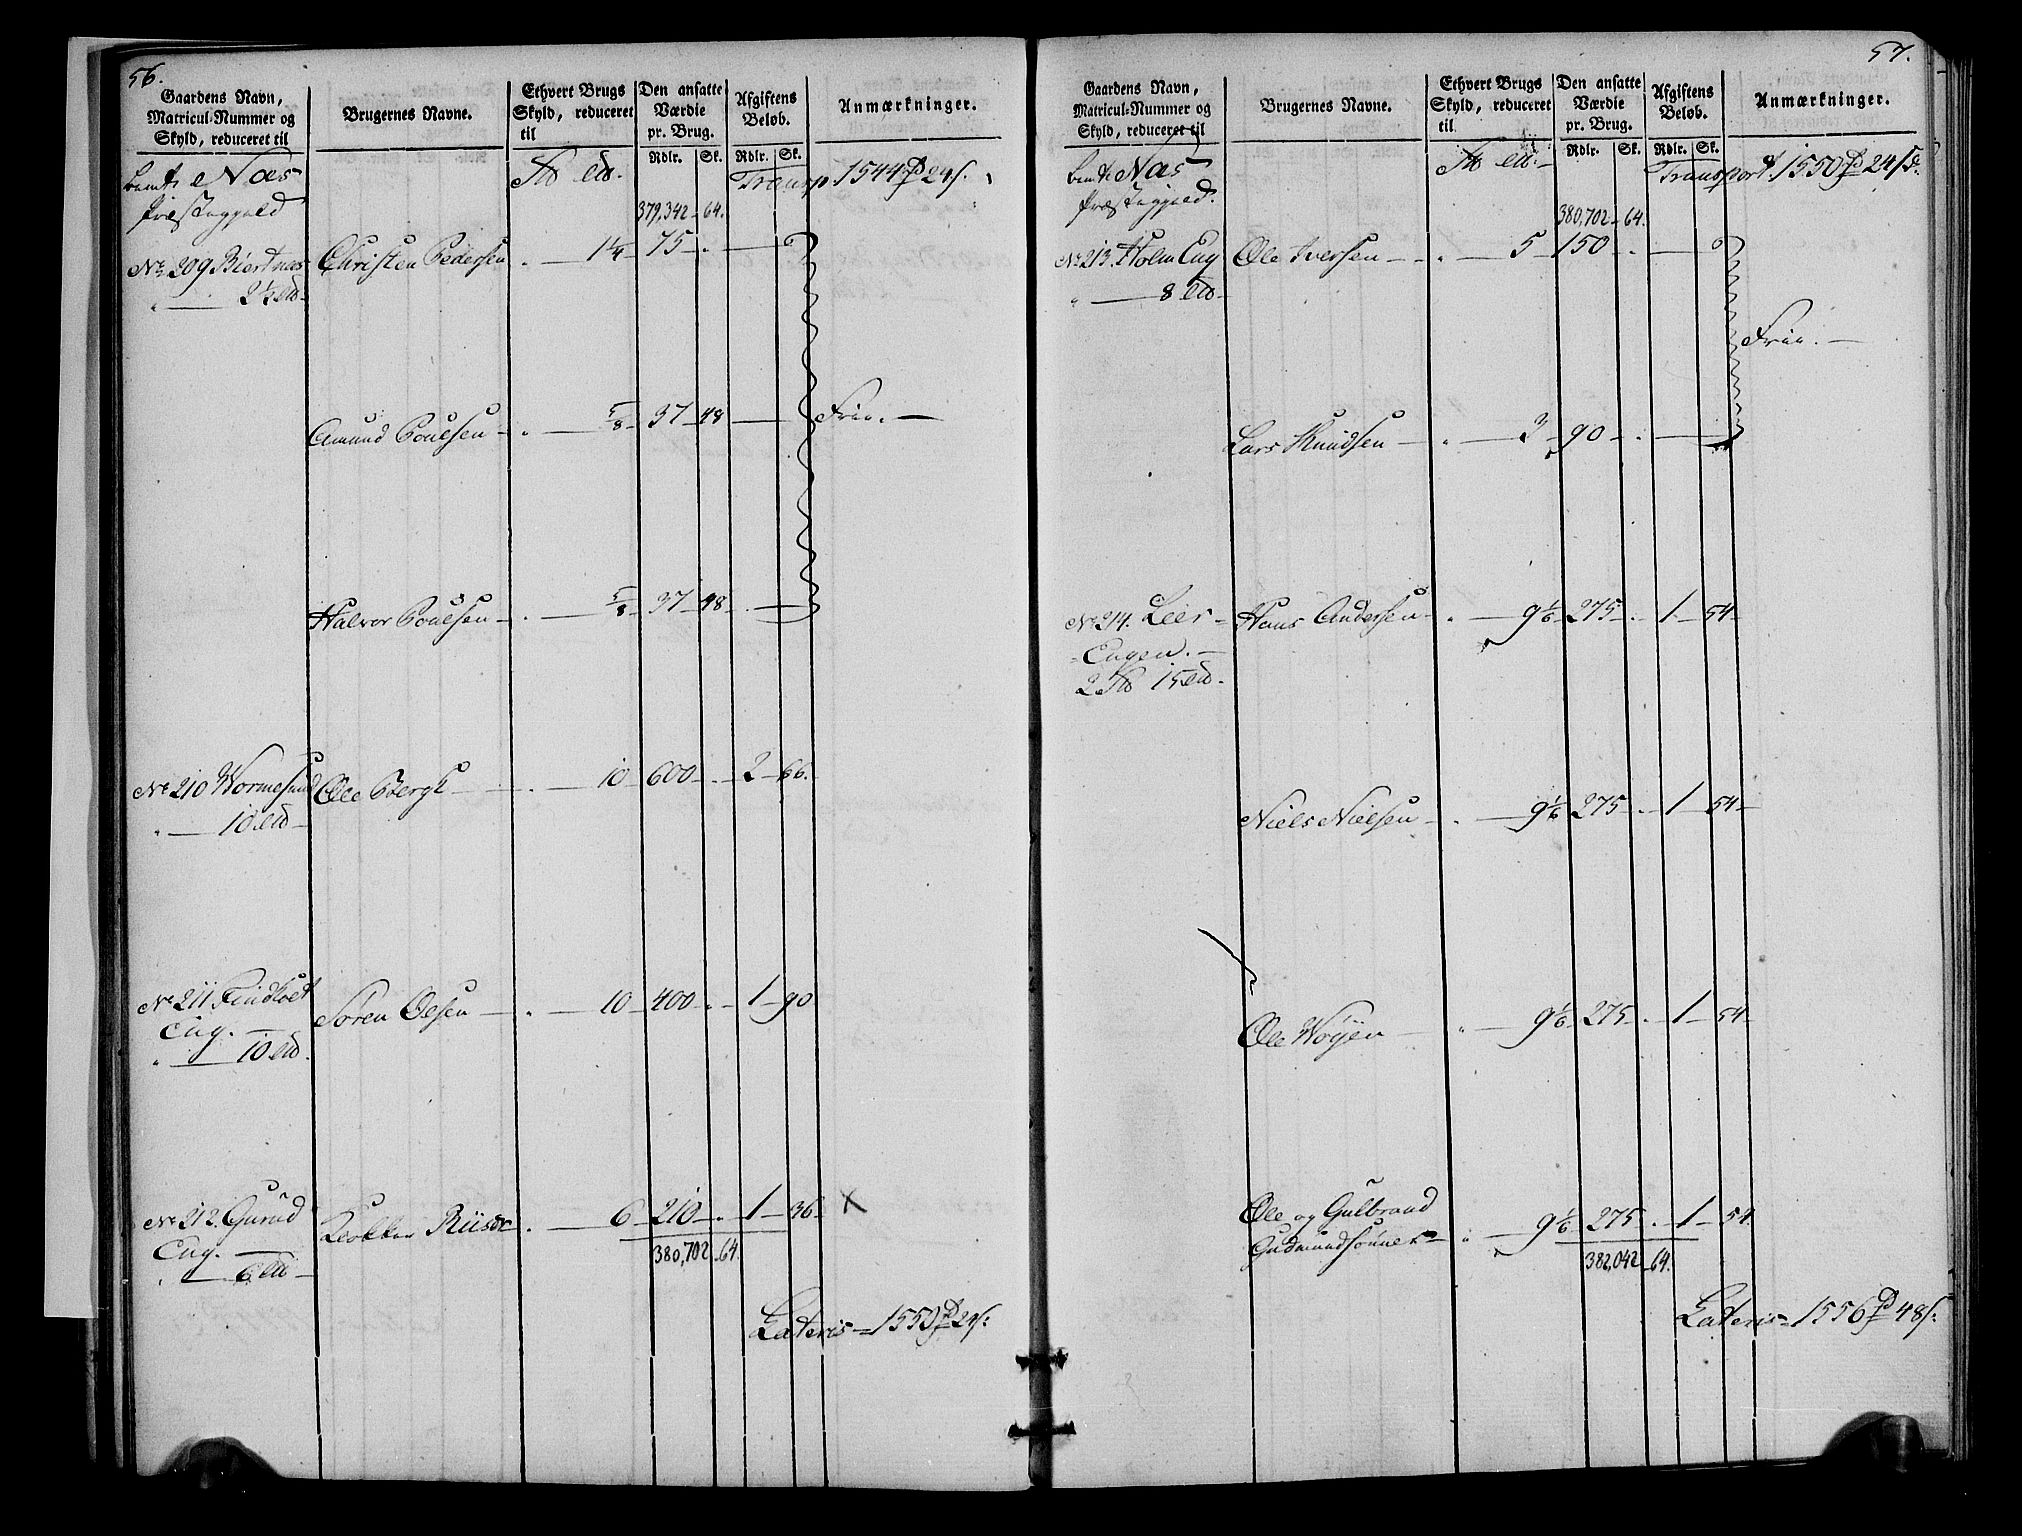 56.
Gaardens Navn, Matricul-Nummer og Skyld, reduceret til | Brugernes Navne. | Ethvert Brugs Skyld, reduceret til | Den ansatte Værdie pr. Brug. Rdlr. Sk. | Afgiftens Beløb. Rdlr. Sk. | Anmærkninger.
Næs Præstegield
Transp. 1544 24
379,342 - 64.
No 209 Biertnæs Christen Pedersen 1 1/4 75
2 1/2
Amund Poulsen 5/8 37 48 Frie.
Halvor Poulsen 5/8 37 48
No 210 Wormesund Ole Bergh 10 600 2 66.
10
No 211 Findholt Søren Olsen 10 400 1 90
Eng.
10
No 212. Gurud Klokker Riiser 6 210 1 36 X
Eng.
6
380,702 64.
Lateris 1550 24
57.
Gaardens Navn, Matricul-Nummer og Skyld, reduceret til | Brugernes Navne. | Ethvert Brugs Skyld, reduceret til | Den ansatte Værdie pr. Brug. Rdlr. Sk. | Afgiftens Beløb. Rdlr. Sk. | Anmærkninger.
Næs Præstegield.
Transport. 1550 24
380,702 - 64.
No 213. Holm Eng Ole Iversen 5 150
8
Frie.
Lars Knudsen 3 90
No 214. Leer- Hans Andersen 9 1/6 275 1 54
Engen.
2 15
Niels Nielsen 9 1/6 275 1 54
Ole Woÿen 9 1/6 275 1 54
Ole og Gulbrand
Gudmundsønner 9 1/6 275 1 54
382,042 64.
Lateris 1556 48